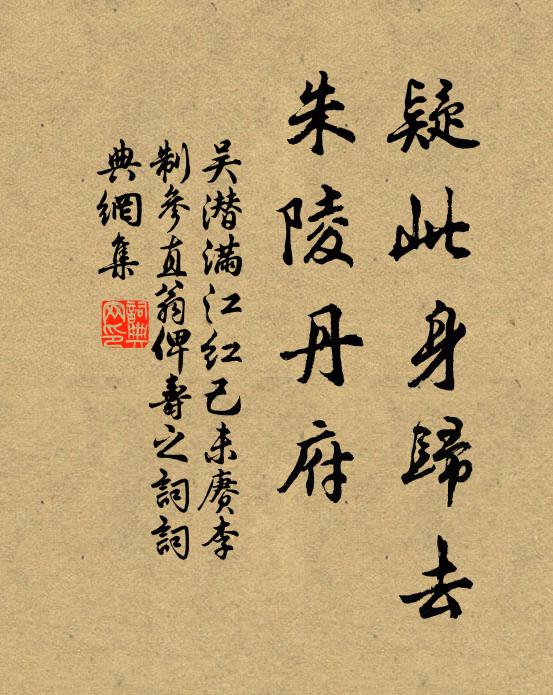 疑此身歸去
朱陵丹府
吴潜滿江紅己未賡李
制參直翁俾壽之詞詞
典網集
詞典
网印